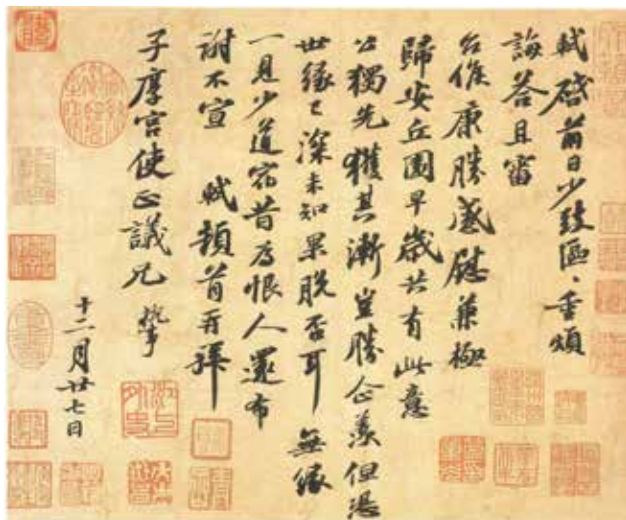 軾啓前日少致區〻重煩
誨答且審
台候康勝感慰兼極
歸安丘園早歲共有此意
公獨先獲其漸豈勝企羨但恐
世緣已深未知果脫否耳 無緣
一見少道宿昔為恨人還布
謝不宣 軾頓首再拜
子厚宮使正議兄 執事
十二月廿七日